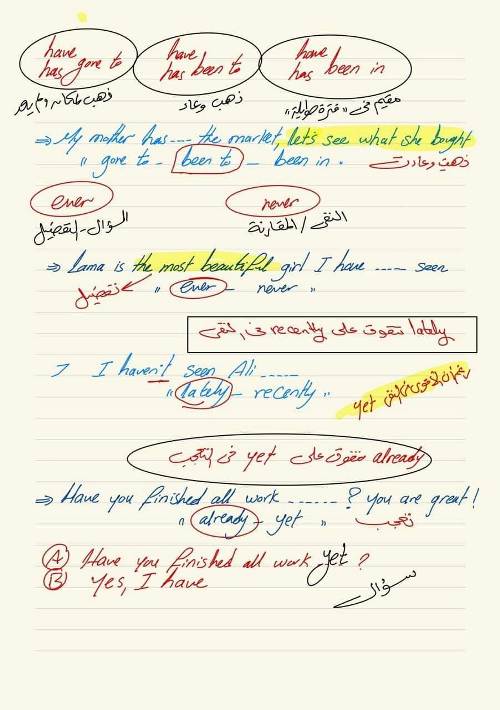 have has gone to
have has been to
have has been in
ذهب لمكان ولم يعد
ذهب وعاد
مقيم فى "فترة طويلة"
⇒ My mother has --- the market, let's see what she bought
" gone to - been to - been in .
ذهبت وعادت
ever
never
السؤال - التفضيل
النفى / المقارنة
⇒ Lama is the most beautiful girl I have ---- seen
تفضيل
" ever - never "
lately تتفوق على recently فى النفى
I haven't seen Ali -----
" lately - recently "
yet النفى
already تتفوق على yet فى التعجب
⇒ Have you finished all work ------ ? you are great!
" already - yet "
تعجب
A Have you finished all work yet ?
B Yes, I have
سؤال